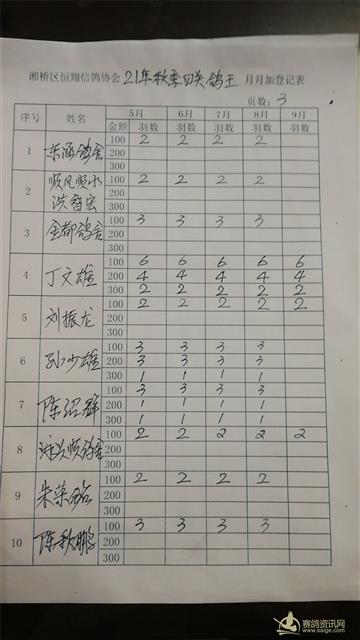 湘桥区恒翔信鸽协会 21年秋季四关鸽王 月月加登记表
页数: 3
序号 姓名 5月 6月 7月 8月 9月
金额 羽数 羽数 羽数 羽数 羽数
1 东涵鸽舍 100 2 2 2 2
200
300
2 顺风顺水 100 2 2 2 2
洪智宏 200
300
3 金都鸽舍 100 3 3 3 3
200
300
4 丁文雄 100 6 6 6 6 6
200 4 4 4 4 4
300 2 2 2 2 2
5 刘振龙 100 2 2 2 2 2
200
300
6 孙少雄 100 3 3 3 3
200 3 3 3 3
300 1 1 1 1
7 陈绍群 100 3 3 3 3
200 1 1 1 1
300 1 1 1 1
8 顺鸽舍 100 2 2 2 2 2
200
300
9 朱荣 100 2 2 2 2
200
300
10 陈秋鹏 100 3 3 3 3
200
300
赛鸽资讯网
www.saige.com